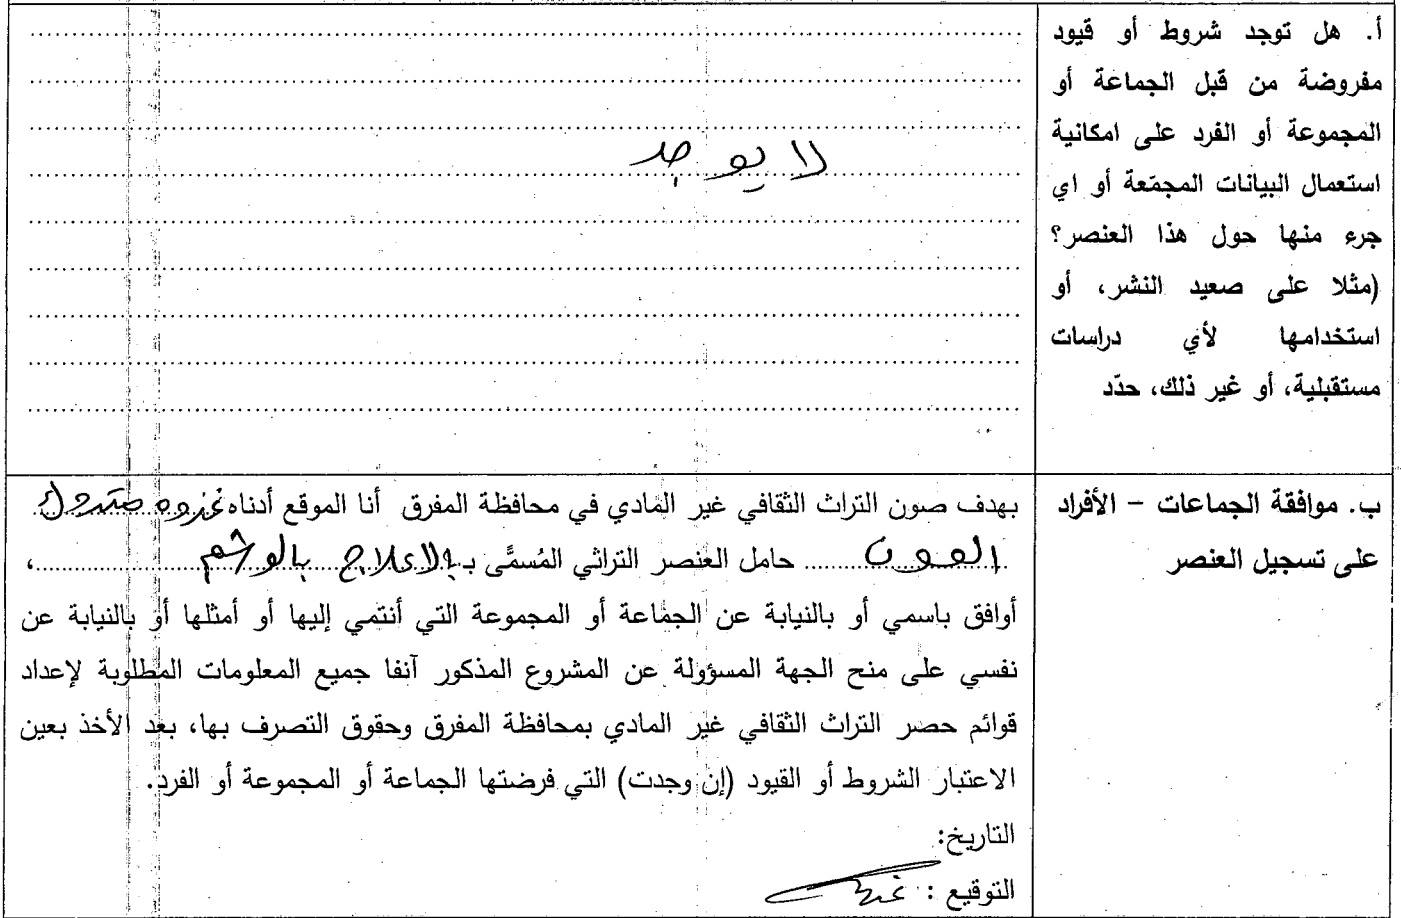 أ. هل توجد شروط أو قيود
مفروضة من قبل الجماعة أو
المجموعة أو الفرد على امكانية
استعمال البيانات المجمّعة أو اي
جرء منها حول هذا العنصر؟
(مثلا على صعيد النشر، أو
استخدامها لأي دراسات
مستقبلية، أو غير ذلك، حدّد
لا يوجد
ب. موافقة الجماعات – الأفراد
على تسجيل العنصر
بهدف صون التراث الثقافي غير المادي في محافظة المفرق أنا الموقع أدناه
العون حامل العنصر التراثي المُسمَّى بـ العلاج بالوشم ،
أوافق باسمي أو بالنيابة عن الجماعة أو المجموعة التي أنتمي إليها أو أمثلها أو بالنيابة عن
نفسي على منح الجهة المسؤولة عن المشروع المذكور آنفا جميع المعلومات المطلوبة لإعداد
قوائم حصر التراث الثقافي غير المادي بمحافظة المفرق وحقوق التصرف بها، بعد الأخذ بعين
الاعتبار الشروط أو القيود (إن وجدت) التي فرضتها الجماعة أو المجموعة أو الفرد.
التاريخ:
التوقيع :